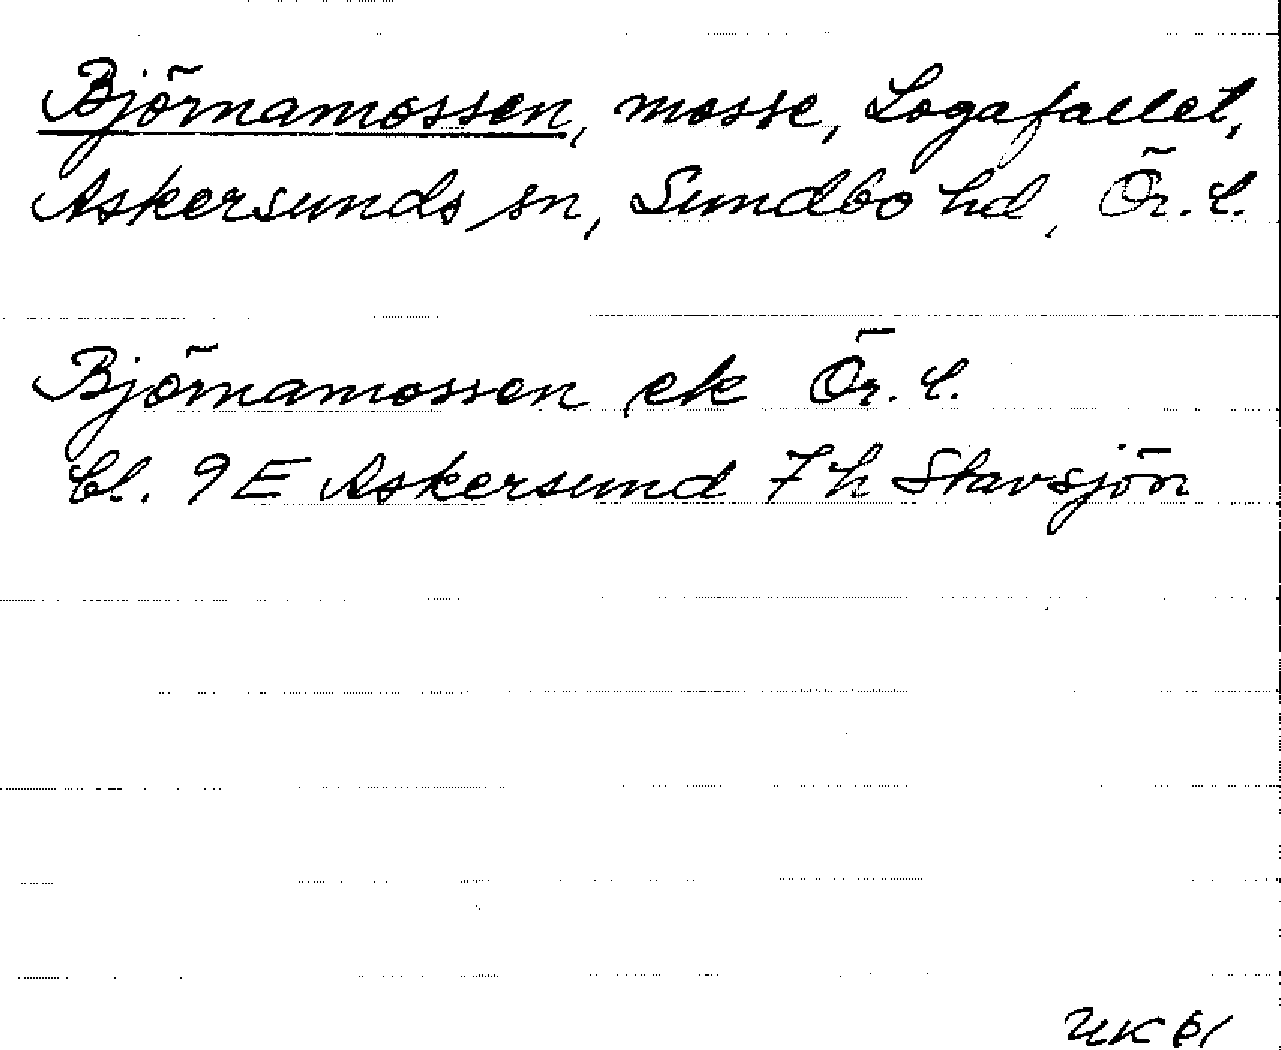 Björnamossen, mosse, Logafallet,
Askersunds sn, Sundbo hd, Ör. l.
Björnamossen ek Ör. l.
Bl. 9 E Askersund 7 h Stavsjön